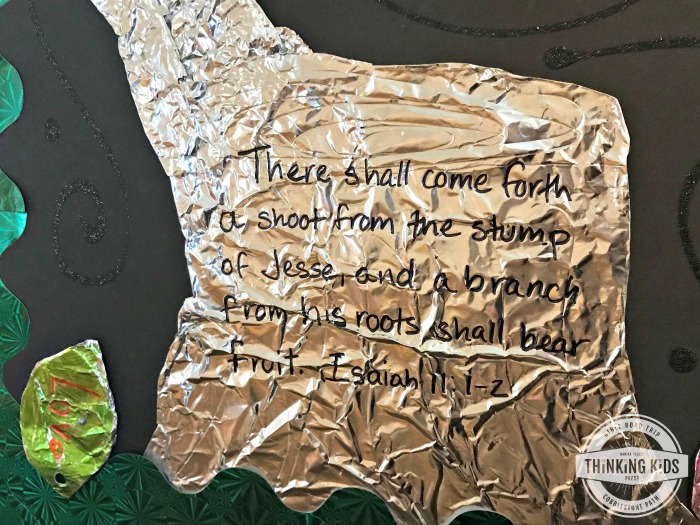 There shall come forth
a shoot from the stump
of Jesse, and a branch
from his roots shall bear
fruit. Isaiah 11:1-2
Love
BIBLE ROAD TRIP
THINKING KIDS
PRESS
COBBLESTONE PATH